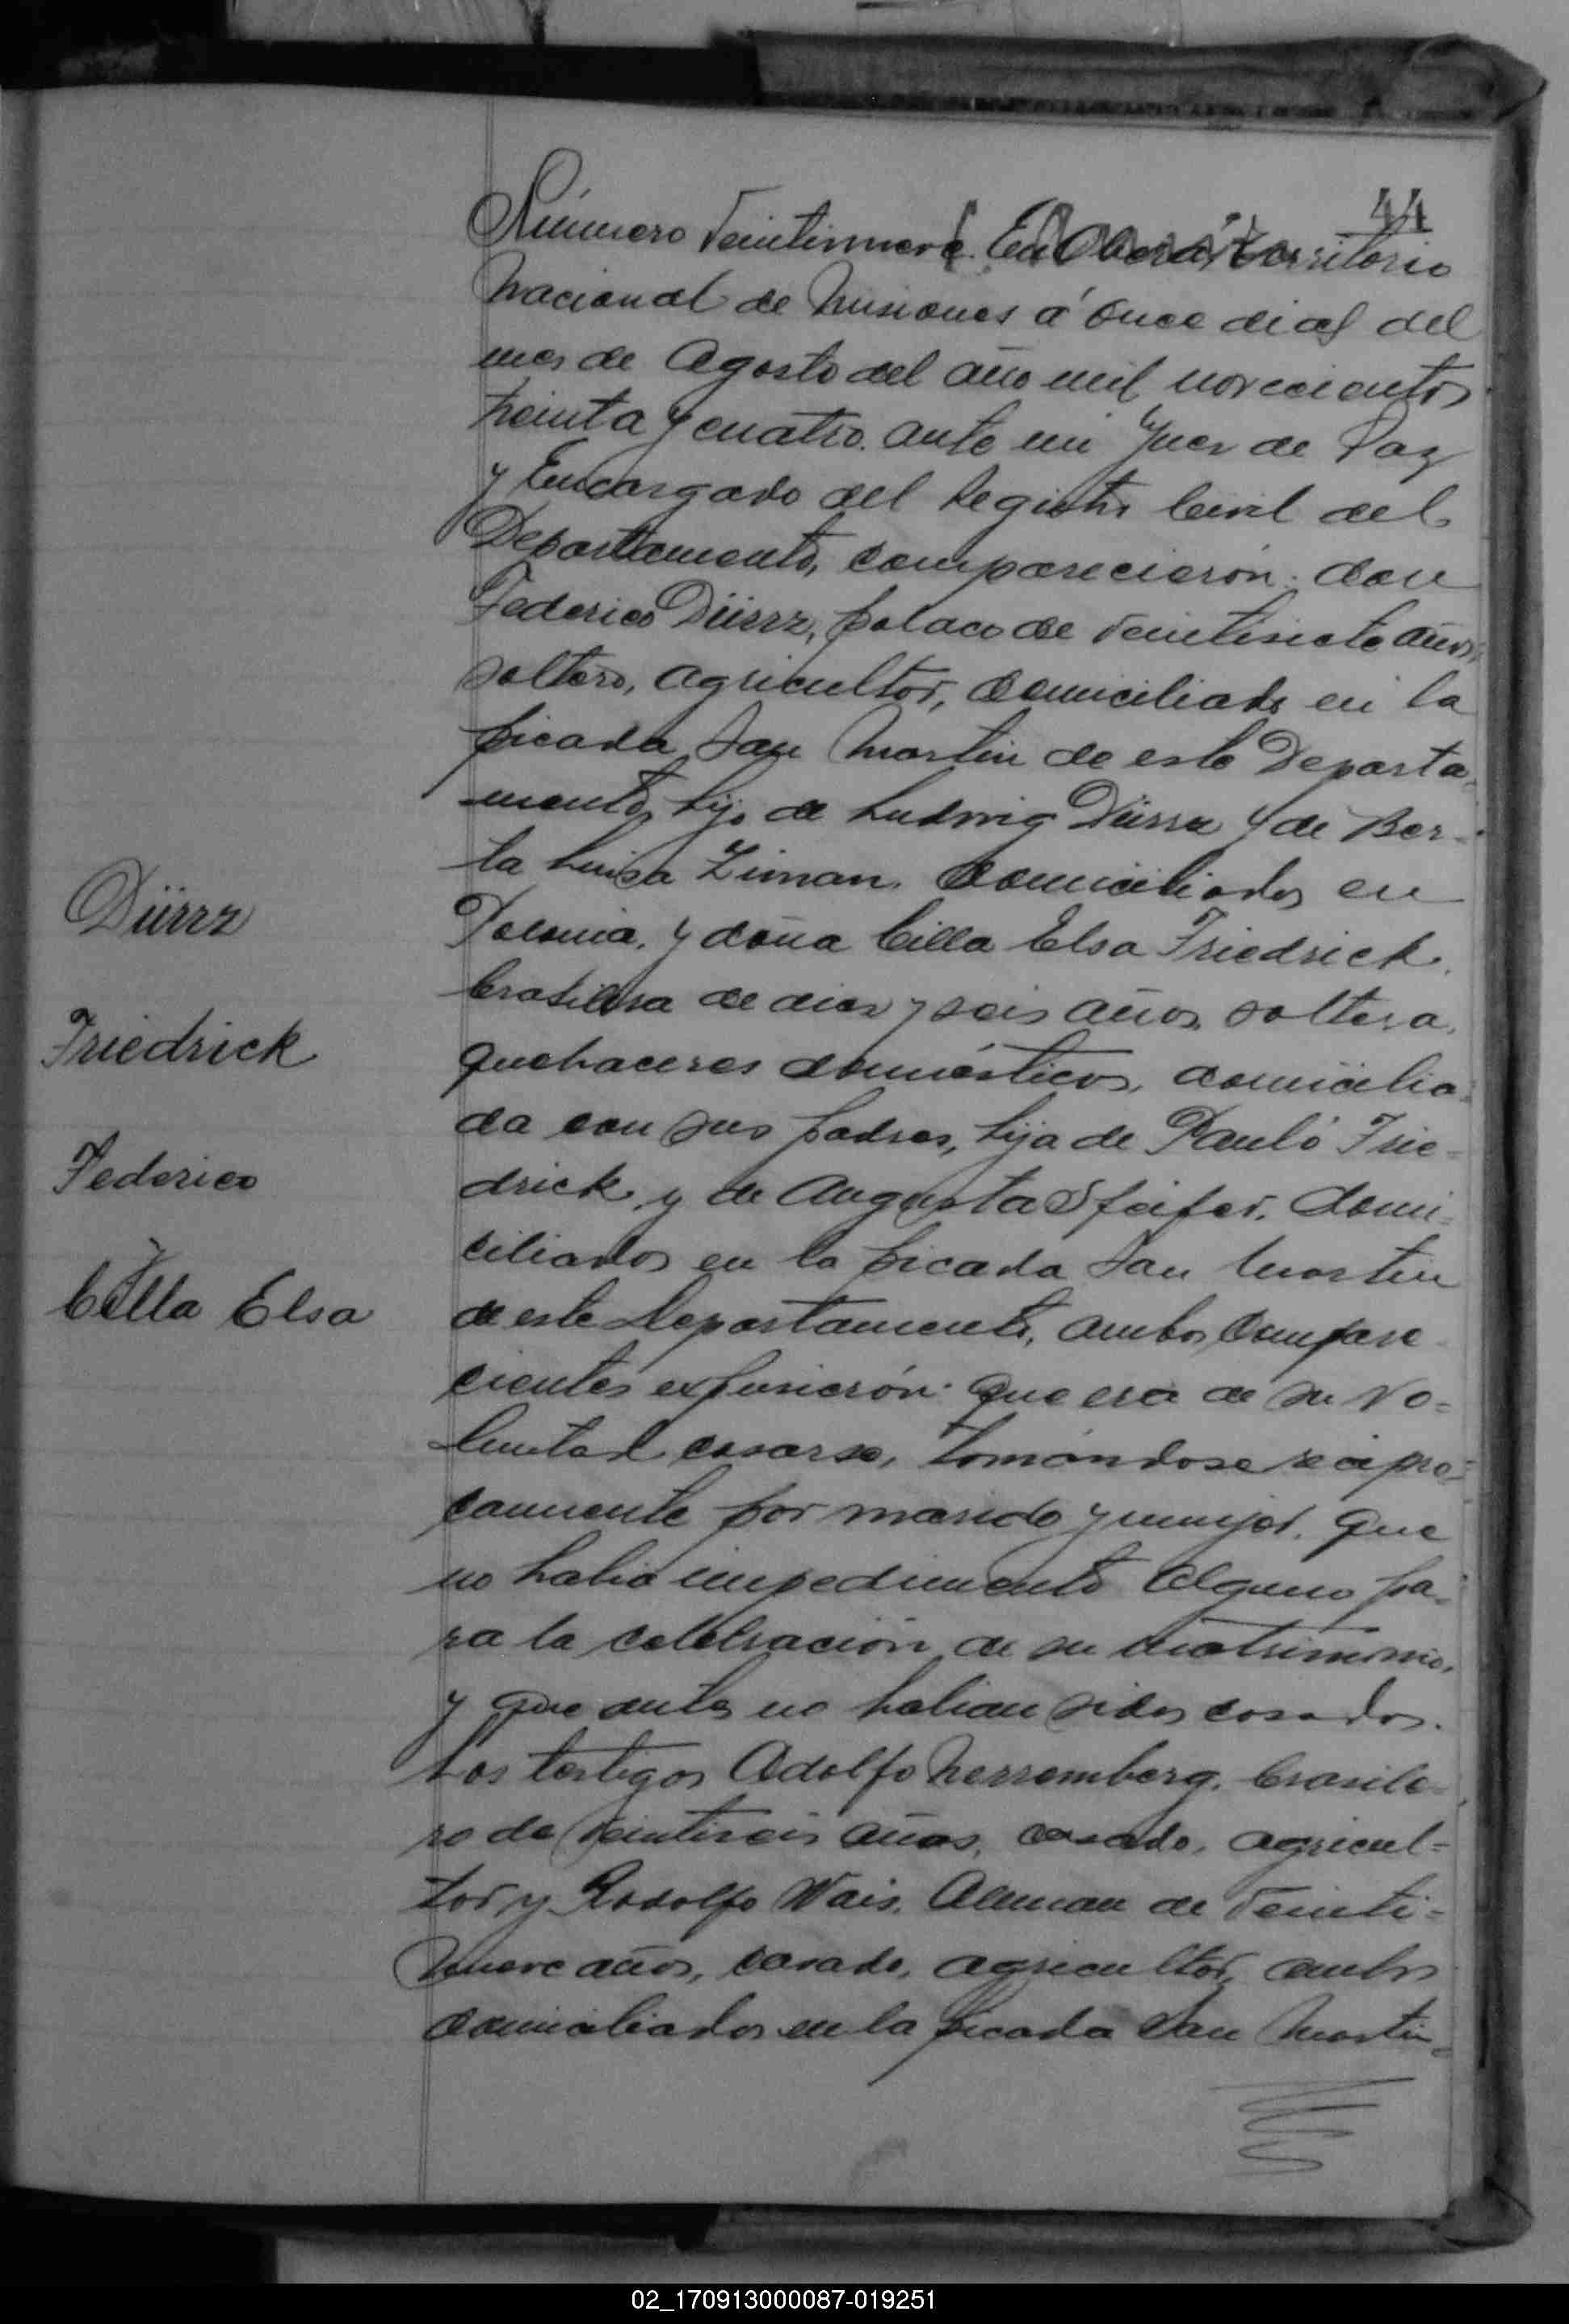 44
Número Veintinueve. En Oberá, territorio
Nacional de Misiones á once dias del
mes de Agosto del año mil novecientos
treinta y cuatro. ante mi Juez de Paz
y Encargado del Registro Civil del
Departamento, comparecieron: don
Federico Dürrz, polaco de veintisiete años,
soltero, agricultor, domiciliado en la
picada San Martin de este Departa-
mento, hijo de Ludwig Dürrz y de Ber-
ta Luisa Ziman. domiciliados en
Polonia. y doña Cilla Elsa Friedrick.
brasilera de diez y seis años, soltera,
quehaceres domésticos, domicilia-
da con sus padres, hija de Pauló Frie-
drick, y de Augusta Sfeifer. domi-
ciliados en la picada San Martin
de este Departamento, ambos compare-
cientes expusierón: que era de su vo-
luntad casarse, tomándose recipro-
camente por marido y mujer. que
no habia impedimento alguno pa-
ra la celebración de su matrimonio,
y que antes no habian sidos casados.
Los testigos Adolfo Nerremberg. brasile-
ro de veintiseis años, casado, agricul-
tor y Rodolfo Wais. Aleman de veinti-
nueve años, casado, agricultor, ambos
domiciliados en la picada San Martin-
Dürrz
Friedrick
Federico
y
Cilla Elsa
02_170913000087-019251